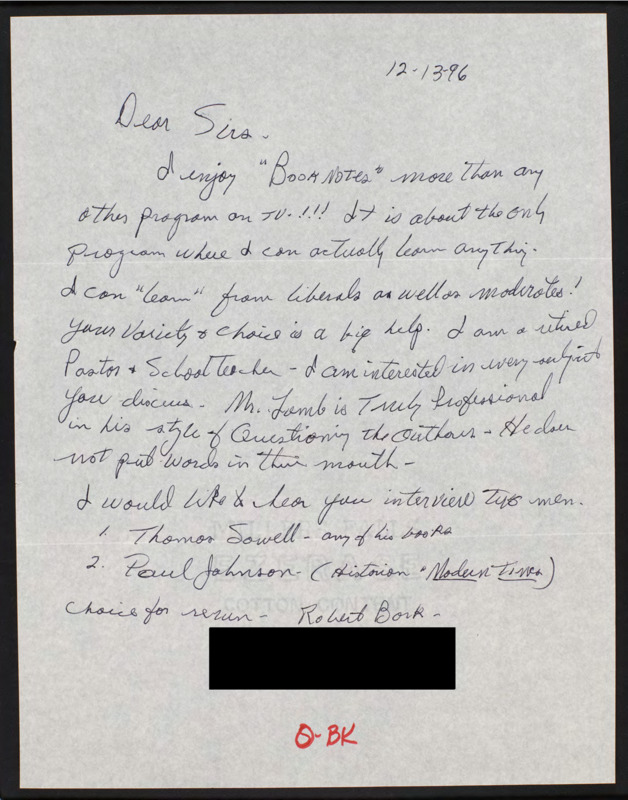 12-13-96
Dear Sirs -
I enjoy "BOOKNOTES" more than any
other program on TV. !!!! It is about the only
program where I can actually learn anything.
I can "learn" from liberals as well as moderates!
Your Variety & choice is a big help. I am a retired
Pastor & School teacher - I am interested in every subject
you discuss - Mr. Lamb is Truly Professional
in his style of Questioning the Authors - He does
not put words in their mouth -
I would like to hear you interview two men.
1. Thomas Sowell - any of his books
2. Paul Johnson - (Historian "Modern Times)
COTTON CONTENT
Choice for rerun - Robert Bork -
O-BK